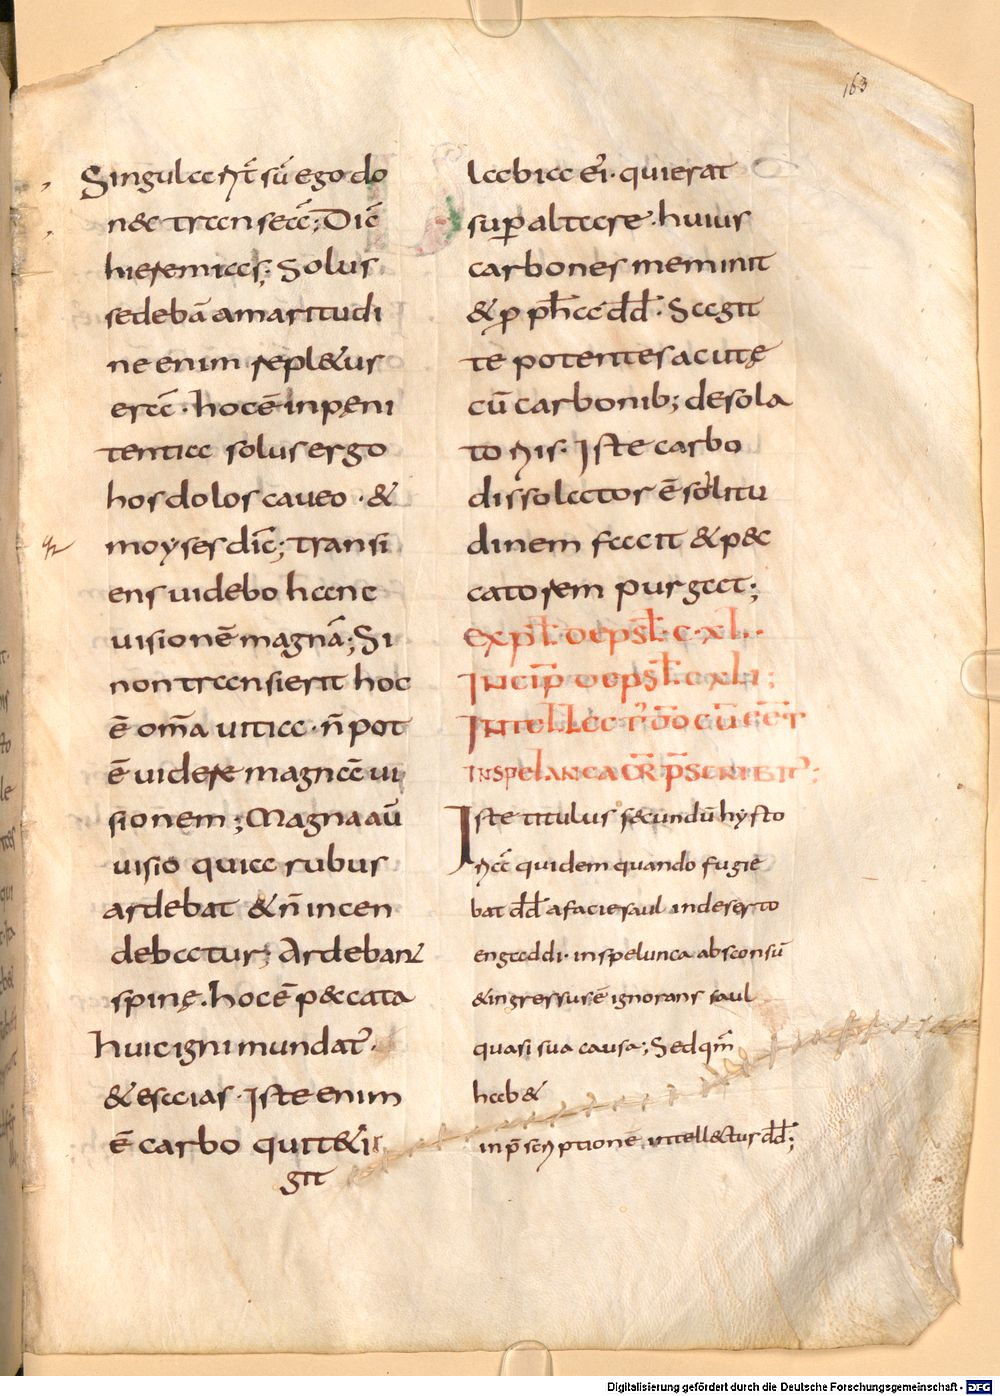 163
Singularit̄ sū ego do
n&c transeā; Dic̄
hieremias; Solus
sedebā amaritudi
ne enim repl&us
erā. hoc ē in pęni
tentia solus ergo
hos dolos caveo. &
moyses dic̄; transi
ens videbo hanc
visionē magnā; Si
non transierit hoc
ē om̄a vitia. n̄ pot
ē videre magnā vi
sionem; Magna aū
visio quia rubus
ardebat & n̄ incen
debatur; Ardebant
spinę. hoc ē peccata
huic igni mundat̄.
& esaias. Iste enim
ē carbo qui tetigit
labia ei. qui erat
sup altare. huius
carbones meminit
& p ph̄a dd̄. Sagit
tę potentes acutę
cū carbonib; desola
toriis. Iste carbo
dissolator ē solitu
dinem facit & pec
catorem purgat;
expl̄. de psl̄. c. xl..
Incip̄ de psl̄. c xli;
Intellec t' dd̄ cū eēt
in spelanca or̄ p̄scribit';
Iste titulus secundū hysto
riā quidem quando fugie
bat dd̄ a facie saul in deserto
engaddi. in spelunca absconsū
& ingressus ē ignorans saul
quasi sua causa; Sed qm̄
hab&
in p̄scriptionē intellectus dd̄;
Digitalisierung gefördert durch die Deutsche Forschungsgemeinschaft - DFG